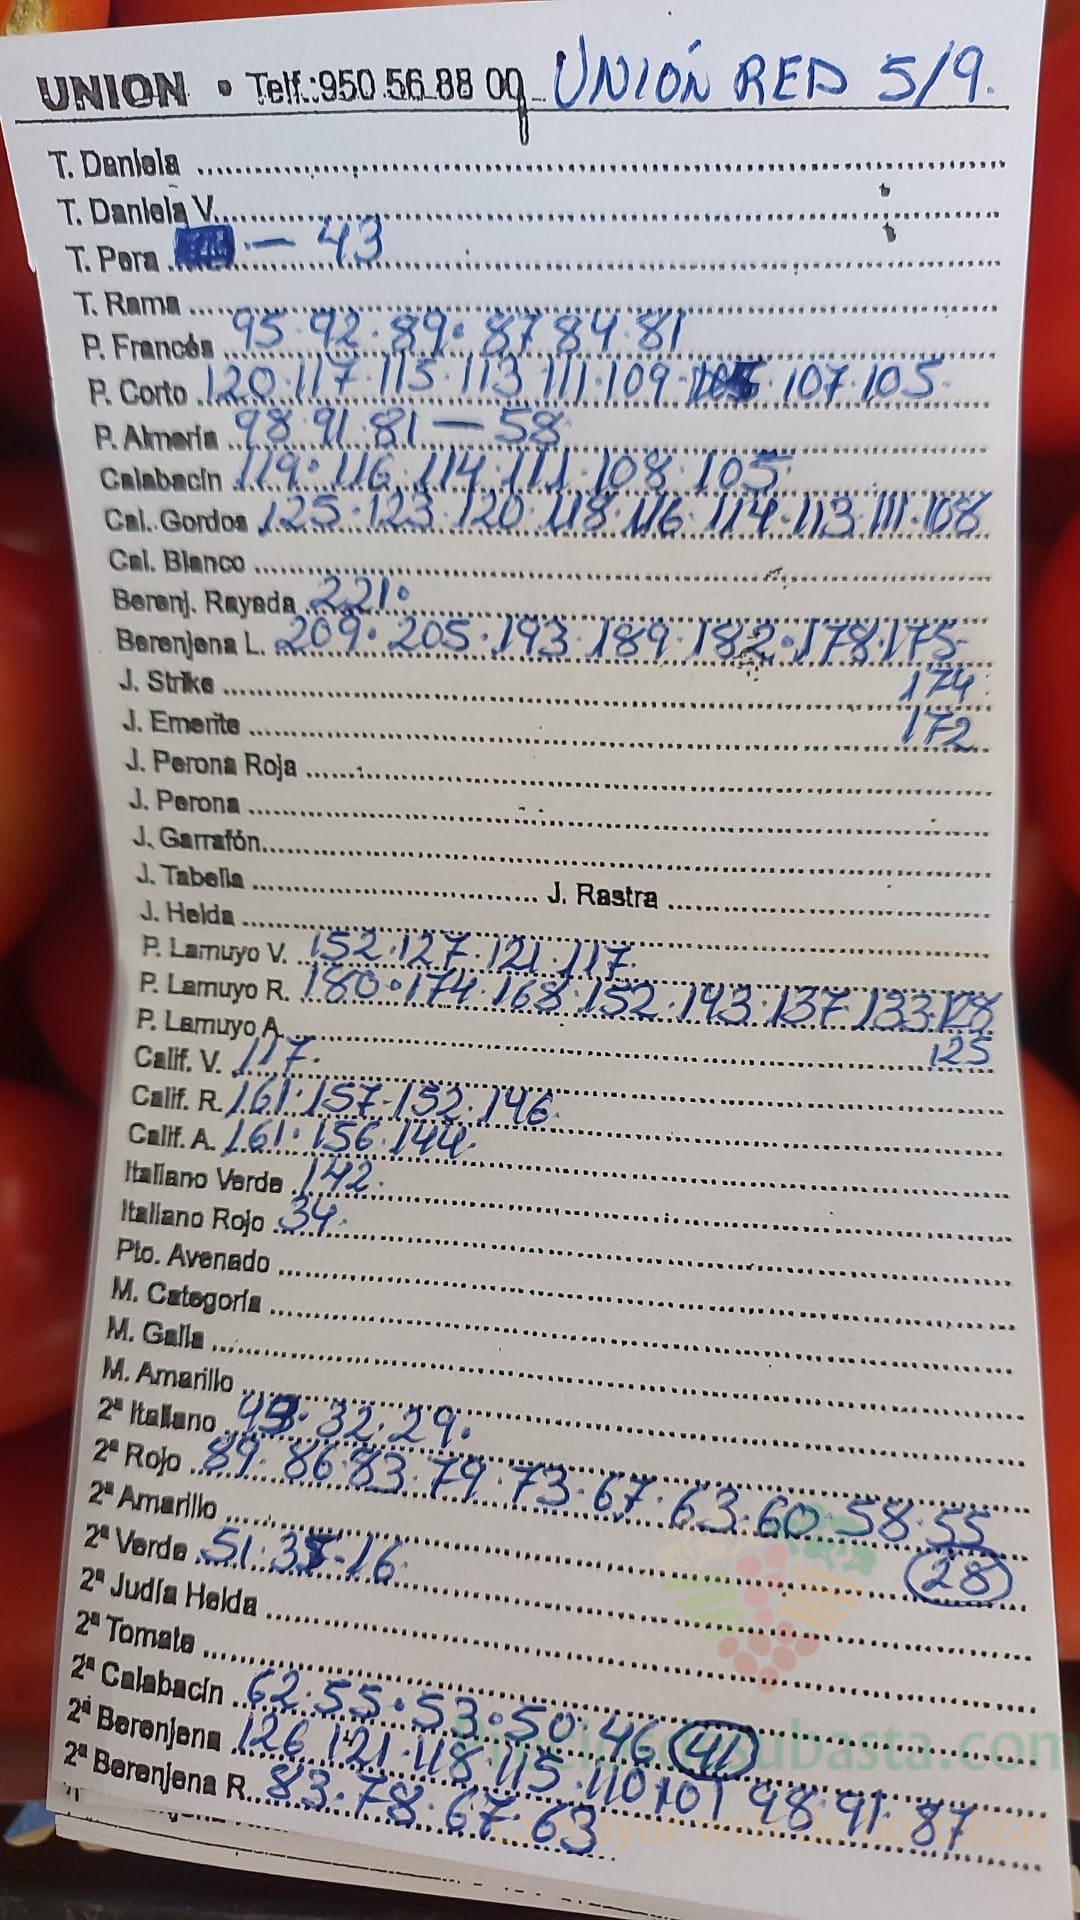 UNION • Telf.:950 56 88 00 UNIÓN RED 5/9.
T. Daniela
T. Daniela V.
T. Pera — 43
T. Rama
P. Francés 95·92·89·87 84·81
P. Corto 120·117·115·113 111·109·107·105
P. Almería 98·91·81—58
Calabacín 119·116·114·111·108·105
Cal. Gordos 125·123·120·118·116·114·113·111·108
Cal. Blanco
Berenj. Rayada 221·
Berenjena L. 209·205·193·189·182·178·175-
J. Strike 174
J. Emerite 172
J. Perona Roja
J. Perona
J. Garrafón
J. Tabella J. Rastra
J. Helda
P. Lamuyo V. 152·127·121·117
P. Lamuyo R. 180·174·168·152·143·137·133·128
P. Lamuyo A. 125
Calif. V. 117.
Calif. R. 161·157-152·146
Calif. A. 161·156·144
Italiano Verde 142.
Italiano Rojo 34.
Pto. Avenado
M. Categoría
M. Galia
M. Amarillo
2ª Italiano 32·29.
2ª Rojo 89·86·83·79·73·67·63·60·58·55
2ª Amarillo 28
2ª Verde 51· -16
2ª Judía Helda
2ª Tomate
2ª Calabacín 62·55·53·50·46 41
2ª Berenjena 126 121·118·115·110 101 98·91·87
2ª Berenjena R. 83·78·67·63